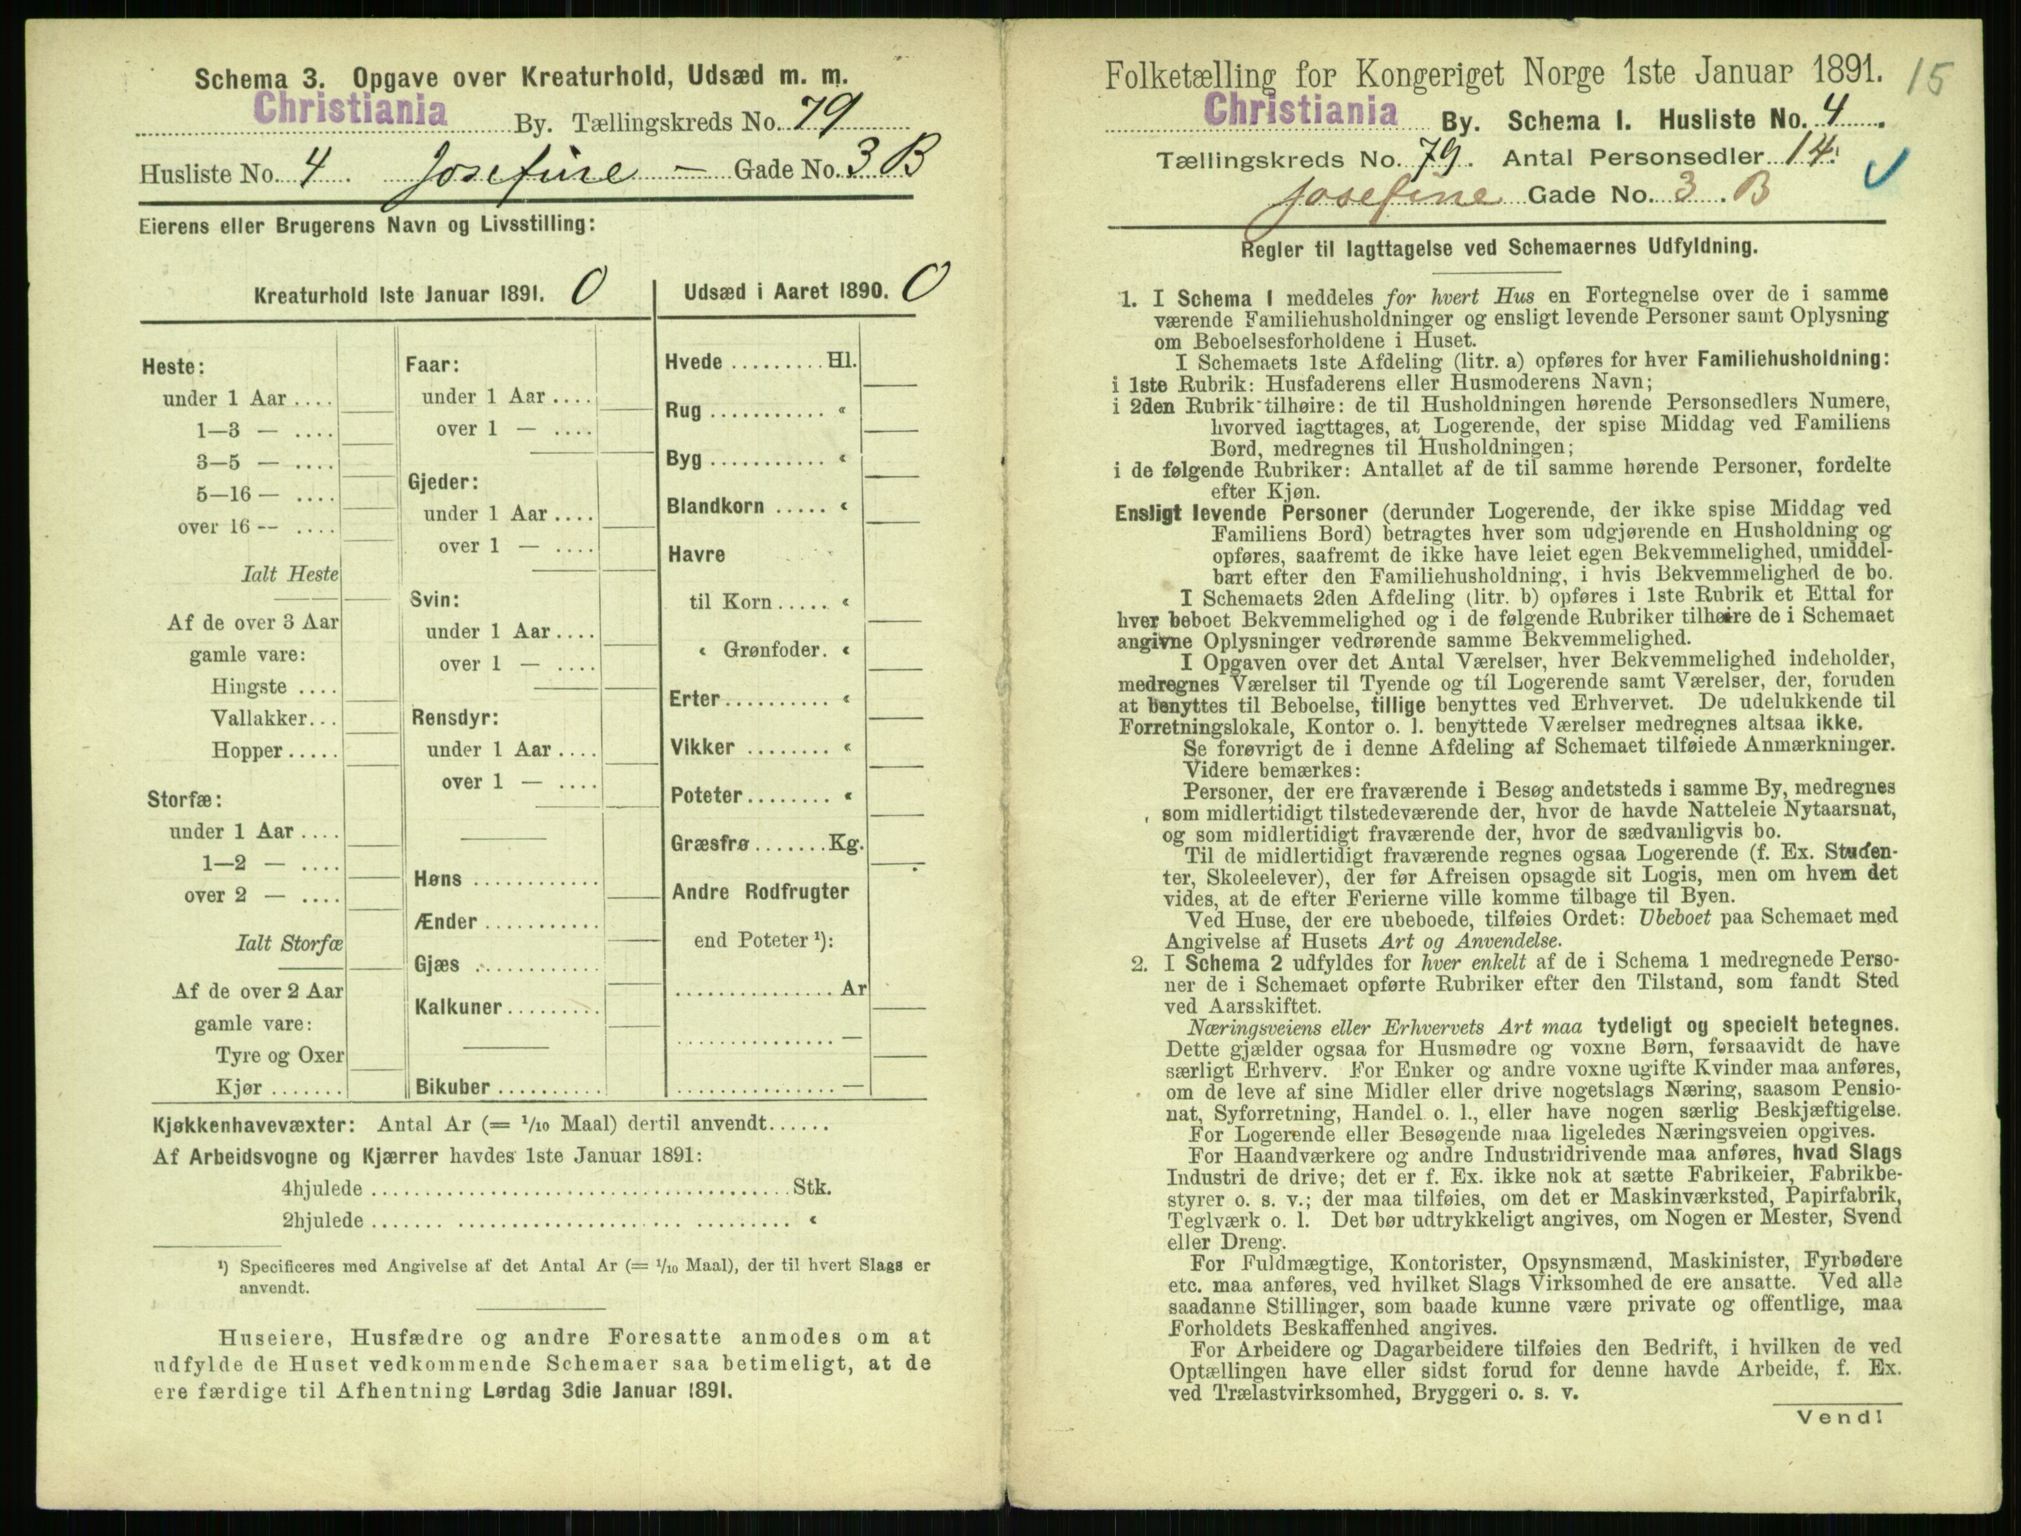 Schema 3. Opgave over Kreaturhold, Udsæd m. m.
Christiania By. Tællingskreds No. 79
Husliste No. 4 Josefine — Gade No. 3 B
Eierens eller Brugerens Navn og Livsstilling:
Kreaturhold 1ste Januar 1891. 0
Heste:
under 1 Aar ....
1—3 — ....
3—5 — ....
5—16 — ....
over 16 -- ....
Ialt Heste
Af de over 3 Aar
gamle vare:
Hingste ....
Vallakker...
Hopper.....
Storfæ:
under 1 Aar ....
1—2 — ....
over 2 — ....
Ialt Storfæ
Af de over 2 Aar
gamle vare:
Tyre og Oxer
Kjør.......
Faar:
under 1 Aar ....
over 1 — ....
Gjeder:
under 1 Aar ....
over 1 — ....
Svin:
under 1 Aar ....
over 1 — ....
Rensdyr:
under 1 Aar ....
over 1 — ....
Høns ............
Ænder ...........
Gjæs ............
Kalkuner.........
Bikuber ..........
Udsæd i Aaret 1890. 0
Hvede ......... Hl.
Rug ........... «
Byg ........... «
Blandkorn ..... «
Havre
til Korn ..... «
« Grønfoder. «
Erter .......... «
Vikker ........ «
Poteter........ «
Græsfrø ....... Kg.
Andre Rodfrugter
end Poteter ¹):
............... Ar
............... —
............... —
Kjøkkenhavevæxter: Antal Ar (= 1/10 Maal) dertil anvendt......
Af Arbeidsvogne og Kjærrer havdes 1ste Januar 1891:
4hjulede ....................................... Stk.
2hjulede ....................................... «
¹) Specificeres med Angivelse af det Antal Ar (= 1/10 Maal), der til hvert Slags er
anvendt.
Huseiere, Husfædre og andre Foresatte anmodes om at
udfylde de Huset vedkommende Schemaer saa betimeligt, at de
ere færdige til Afhentning Lørdag 3die Januar 1891.
Folketælling for Kongeriget Norge 1ste Januar 1891. 15
Christiania By. Schema 1. Husliste No. 4.
Tællingskreds No. 79. Antal Personsedler 14.
Josefine Gade No. 3. B
Regler til Iagttagelse ved Schemaernes Udfyldning.
1. I Schema 1 meddeles for hvert Hus en Fortegnelse over de i samme
værende Familiehusholdninger og ensligt levende Personer samt Oplysning
om Beboelsesforholdene i Huset.
I Schemaets 1ste Afdeling (litr. a) opføres for hver Familiehusholdning:
i 1ste Rubrik: Husfaderens eller Husmoderens Navn;
i 2den Rubrik tilhøire: de til Husholdningen hørende Personsedlers Numere,
hvorved iagttages, at Logerende, der spise Middag ved Familiens
Bord, medregnes til Husholdningen;
i de følgende Rubriker: Antallet af de til samme hørende Personer, fordelte
efter Kjøn.
Ensligt levende Personer (derunder Logerende, der ikke spise Middag ved
Familiens Bord) betragtes hver som udgjørende en Husholdning og
opføres, saafremt de ikke have leiet egen Bekvemmelighed, umiddel-
bart efter den Familiehusholdning, i hvis Bekvemmelighed de bo.
I Schemaets 2den Afdeling (litr. b) opføres i 1ste Rubrik et Ettal for
hver beboet Bekvemmelighed og i de følgende Rubriker tilhøire de i Schemaet
angivne Oplysninger vedrørende samme Bekvemmelighed.
I Opgaven over det Antal Værelser, hver Bekvemmelighed indeholder,
medregnes Værelser til Tyende og til Logerende samt Værelser, der, foruden
at benyttes til Beboelse, tillige benyttes ved Erhvervet. De udelukkende til
Forretningslokale, Kontor o. l. benyttede Værelser medregnes altsaa ikke.
Se forøvrigt de i denne Afdeling af Schemaet tilføiede Anmærkninger.
Videre bemærkes:
Personer, der ere fraværende i Besøg andetsteds i samme By, medregnes
som midlertidigt tilstedeværende der, hvor de havde Natteleie Nytaarsnat,
og som midlertidigt fraværende der, hvor de sædvanligvis bo.
Til de midlertidigt fraværende regnes ogsaa Logerende (f. Ex. Studen-
ter, Skoleelever), der før Afreisen opsagde sit Logis, men om hvem det
vides, at de efter Ferierne ville komme tilbage til Byen.
Ved Huse, der ere ubeboede, tilføies Ordet: Ubeboet paa Schemaet med
Angivelse af Husets Art og Anvendelse.
2. I Schema 2 udfyldes for hver enkelt af de i Schema 1 medregnede Perso-
ner de i Schemaet opførte Rubriker efter den Tilstand, som fandt Sted
ved Aarsskiftet.
Næringsveiens eller Erhvervets Art maa tydeligt og specielt betegnes.
Dette gjælder ogsaa for Husmødre og voxne Børn, forsaavidt de have
særligt Erhverv. For Enker og andre voxne ugifte Kvinder maa anføres,
om de leve af sine Midler eller drive nogetslags Næring, saasom Pensio-
nat, Syforretning, Handel o. l., eller have nogen særlig Beskjæftigelse.
For Logerende eller Besøgende maa ligeledes Næringsveien opgives.
For Haandværkere og andre Industridrivende maa anføres, hvad Slags
Industri de drive; det er f. Ex. ikke nok at sætte Fabrikeier, Fabrikbe-
styrer o. s. v.; der maa tilføies, om det er Maskinværksted, Papirfabrik,
Teglværk o. l. Det bør udtrykkeligt angives, om Nogen er Mester, Svend
eller Dreng.
For Fuldmægtige, Kontorister, Opsynsmænd, Maskinister, Fyrbødere
etc. maa anføres, ved hvilket Slags Virksomhed de ere ansatte. Ved alle
saadanne Stillinger, som baade kunne være private og offentlige, maa
Forholdets Beskaffenhed angives.
For Arbeidere og Dagarbeidere tilføies den Bedrift, i hvilken de ved
Optællingen have eller sidst forud for denne havde Arbeide, f. Ex.
ved Trælastvirksomhed, Bryggeri o. s. v.
Vend!